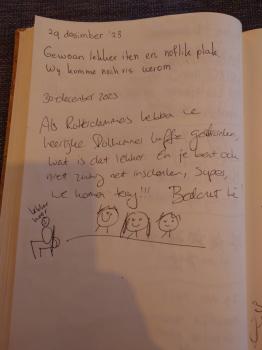 29 desimber '23
Gewoan lekker iten en noflik plak
Wy komme noch ris werom
30 december 2023
Als Rotterdammers hebben we
heerlijke koffie gedronken,
wat is dat lekker en je bent ook
niet zuinig met inschenken, Super,
we komen terug!!!
lekker
hoor